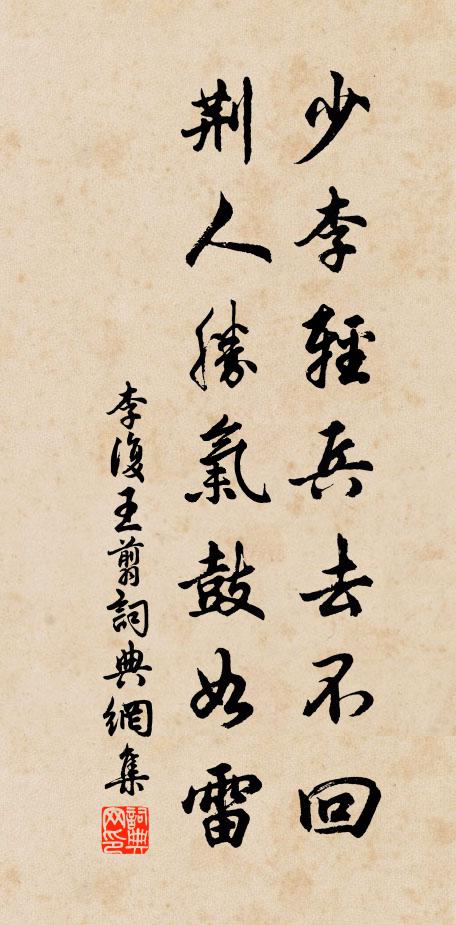 少李輕兵去不回
荆人勝氣鼓如雷
李復王翦詞典網集
詞典
网印